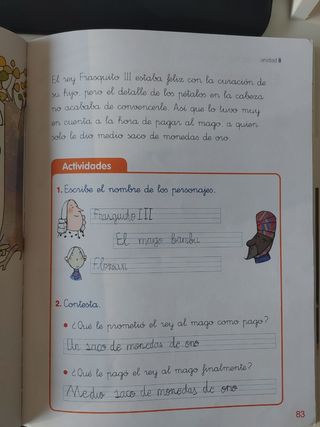 unidad 8
El rey Frasquito III estaba feliz con la curación de
su hijo, pero el detalle de los pétalos en la cabeza
no acababa de convencerle. Así que lo tuvo muy
en cuenta a la hora de pagar al mago, a quien
solo le dio medio saco de monedas de oro.
Actividades
1. Escribe el nombre de los personajes.
Frasquito III
El mago bambu
Florian
2. Contesta.
• ¿Qué le prometió el rey al mago como pago?
Un saco de monedas de oro
• ¿Qué le pagó el rey al mago finalmente?
Medio saco de monedas de oro
83